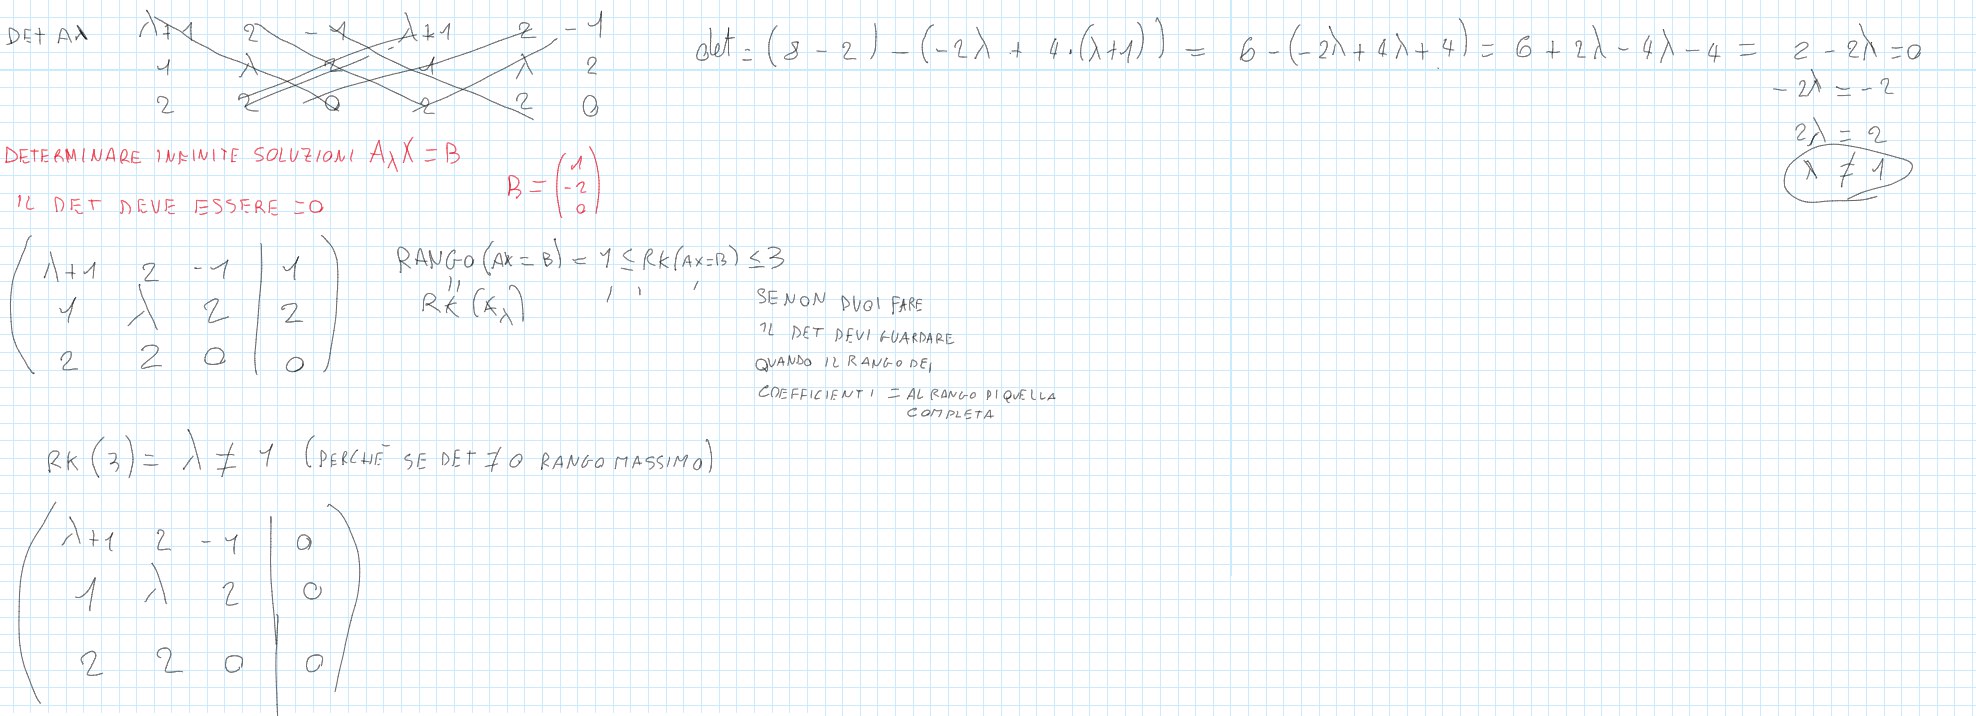 DET Aλ λ+1 2 -1 λ+1 2 -1
1 λ 2 1 λ 2
2 2 0 2 2 0
det = (8 - 2) - (-2λ + 4·(λ+1)) = 6 - (-2λ + 4λ + 4) = 6 + 2λ - 4λ - 4 = 2 - 2λ = 0
- 2λ = - 2
2λ = 2
λ ≠ 1
DETERMINARE INFINITE SOLUZIONI AλX = B
B = (1
-2
0)
IL DET DEVE ESSERE = 0
λ+1 2 -1 | 1
1 λ 2 | 2
2 2 0 | 0
RANGO (AX = B) = 1 ≤ RK(AX=B) ≤ 3
"
RK (Aλ)
SE NON PUOI FARE
IL DET DEVI GUARDARE
QUANDO IL RANGO DEI
COEFFICIENTI = AL RANGO DI QUELLA
COMPLETA
RK (3) = λ ≠ 1 (PERCHÈ SE DET ≠ 0 RANGO MASSIMO)
λ+1 2 -1 | 0
1 λ 2 | 0
2 2 0 | 0